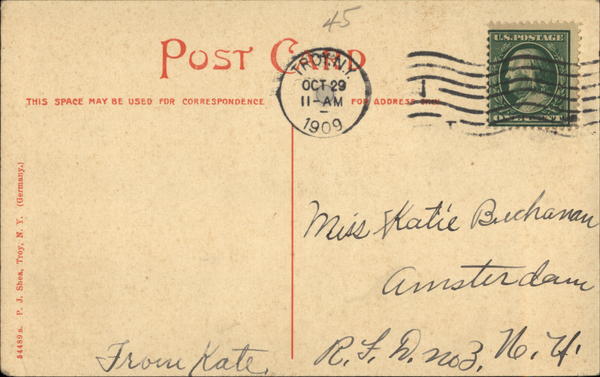 45
POST CARD
TROY, N.Y.
OCT 29
11-AM
1909
U.S. POSTAGE
ONE CENT
THIS SPACE MAY BE USED FOR CORRESPONDENCE
FOR ADDRESS ONLY
54489 s. P. J. Shea, Troy, N. Y. (Germany.)
Miss Katie Buchanan
Amsterdam
R.F.D. no 3, N.Y.
From Kate.